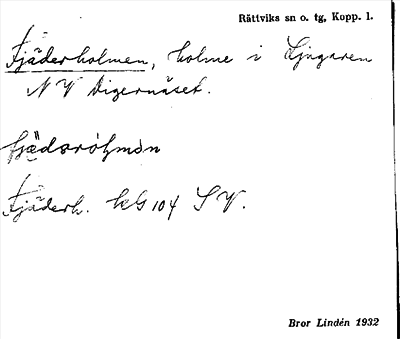 Rättviks sn o. tg, Kopp. l.
Fjäderholmen, holme i Ljugaren
NV Digernäset.
Fjäderh. kb 104 SV.
Bror Lindén 1932